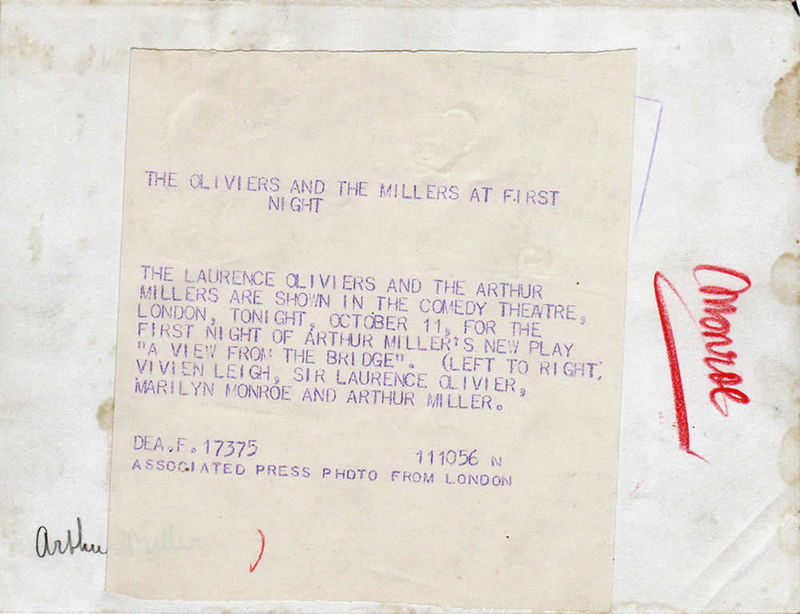 THE OLIVIERS AND THE MILLERS AT FIRST
NIGHT
THE LAURENCE OLIVIERS AND THE ARTHUR
MILLERS ARE SHOWN IN THE COMEDY THEATRE,
LONDON, TONIGHT, OCTOBER 11, FOR THE
FIRST NIGHT OF ARTHUR MILLER'S NEW PLAY
"A VIEW FROM THE BRIDGE". (LEFT TO RIGHT,
VIVIEN LEIGH, SIR LAURENCE OLIVIER,
MARILYN MONROE AND ARTHUR MILLER.
DEA.F.17375 111056 N
ASSOCIATED PRESS PHOTO FROM LONDON
Monroe
Arthu Miller